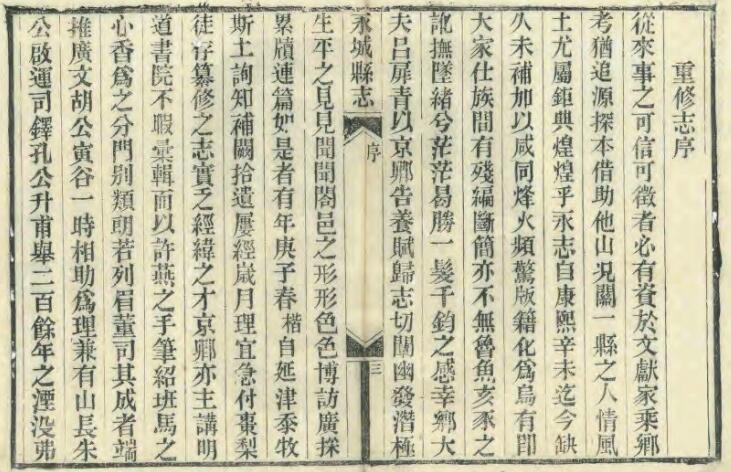 重修志序
從來事之可信可徵者必有資於文獻家乘鄉
考猶追源探本借助他山况關一縣之人情風
土尤屬鉅典煌煌乎永志自康熙辛未迄今缺
久未補加以咸同烽火頻驚版籍化爲烏有即
大家仕族間有殘編斷簡亦不無魯魚亥豕之
訛撫墜緒兮茫茫曷勝一髮千鈞之感幸鄉大
夫呂扉青以京卿告養賦歸志切闡幽發潛極
永城縣志
序
三
生平之見見聞聞閤邑之形形色色博訪廣採
累牘連篇如是者有年庚子春楷自延津忝牧
斯土詢知補闕拾遺屢經歲月理宜急付棗梨
徒存纂修之志實乏經緯之才京卿亦主講明
道書院不暇彚輯而以許燕之手筆紹班馬之
心香爲之分門别類朗若列眉董司其成者端
推廣文胡公寅谷一時相助爲理兼有山長朱
公啟運司鐸孔公升甫舉二百餘年之湮没弗